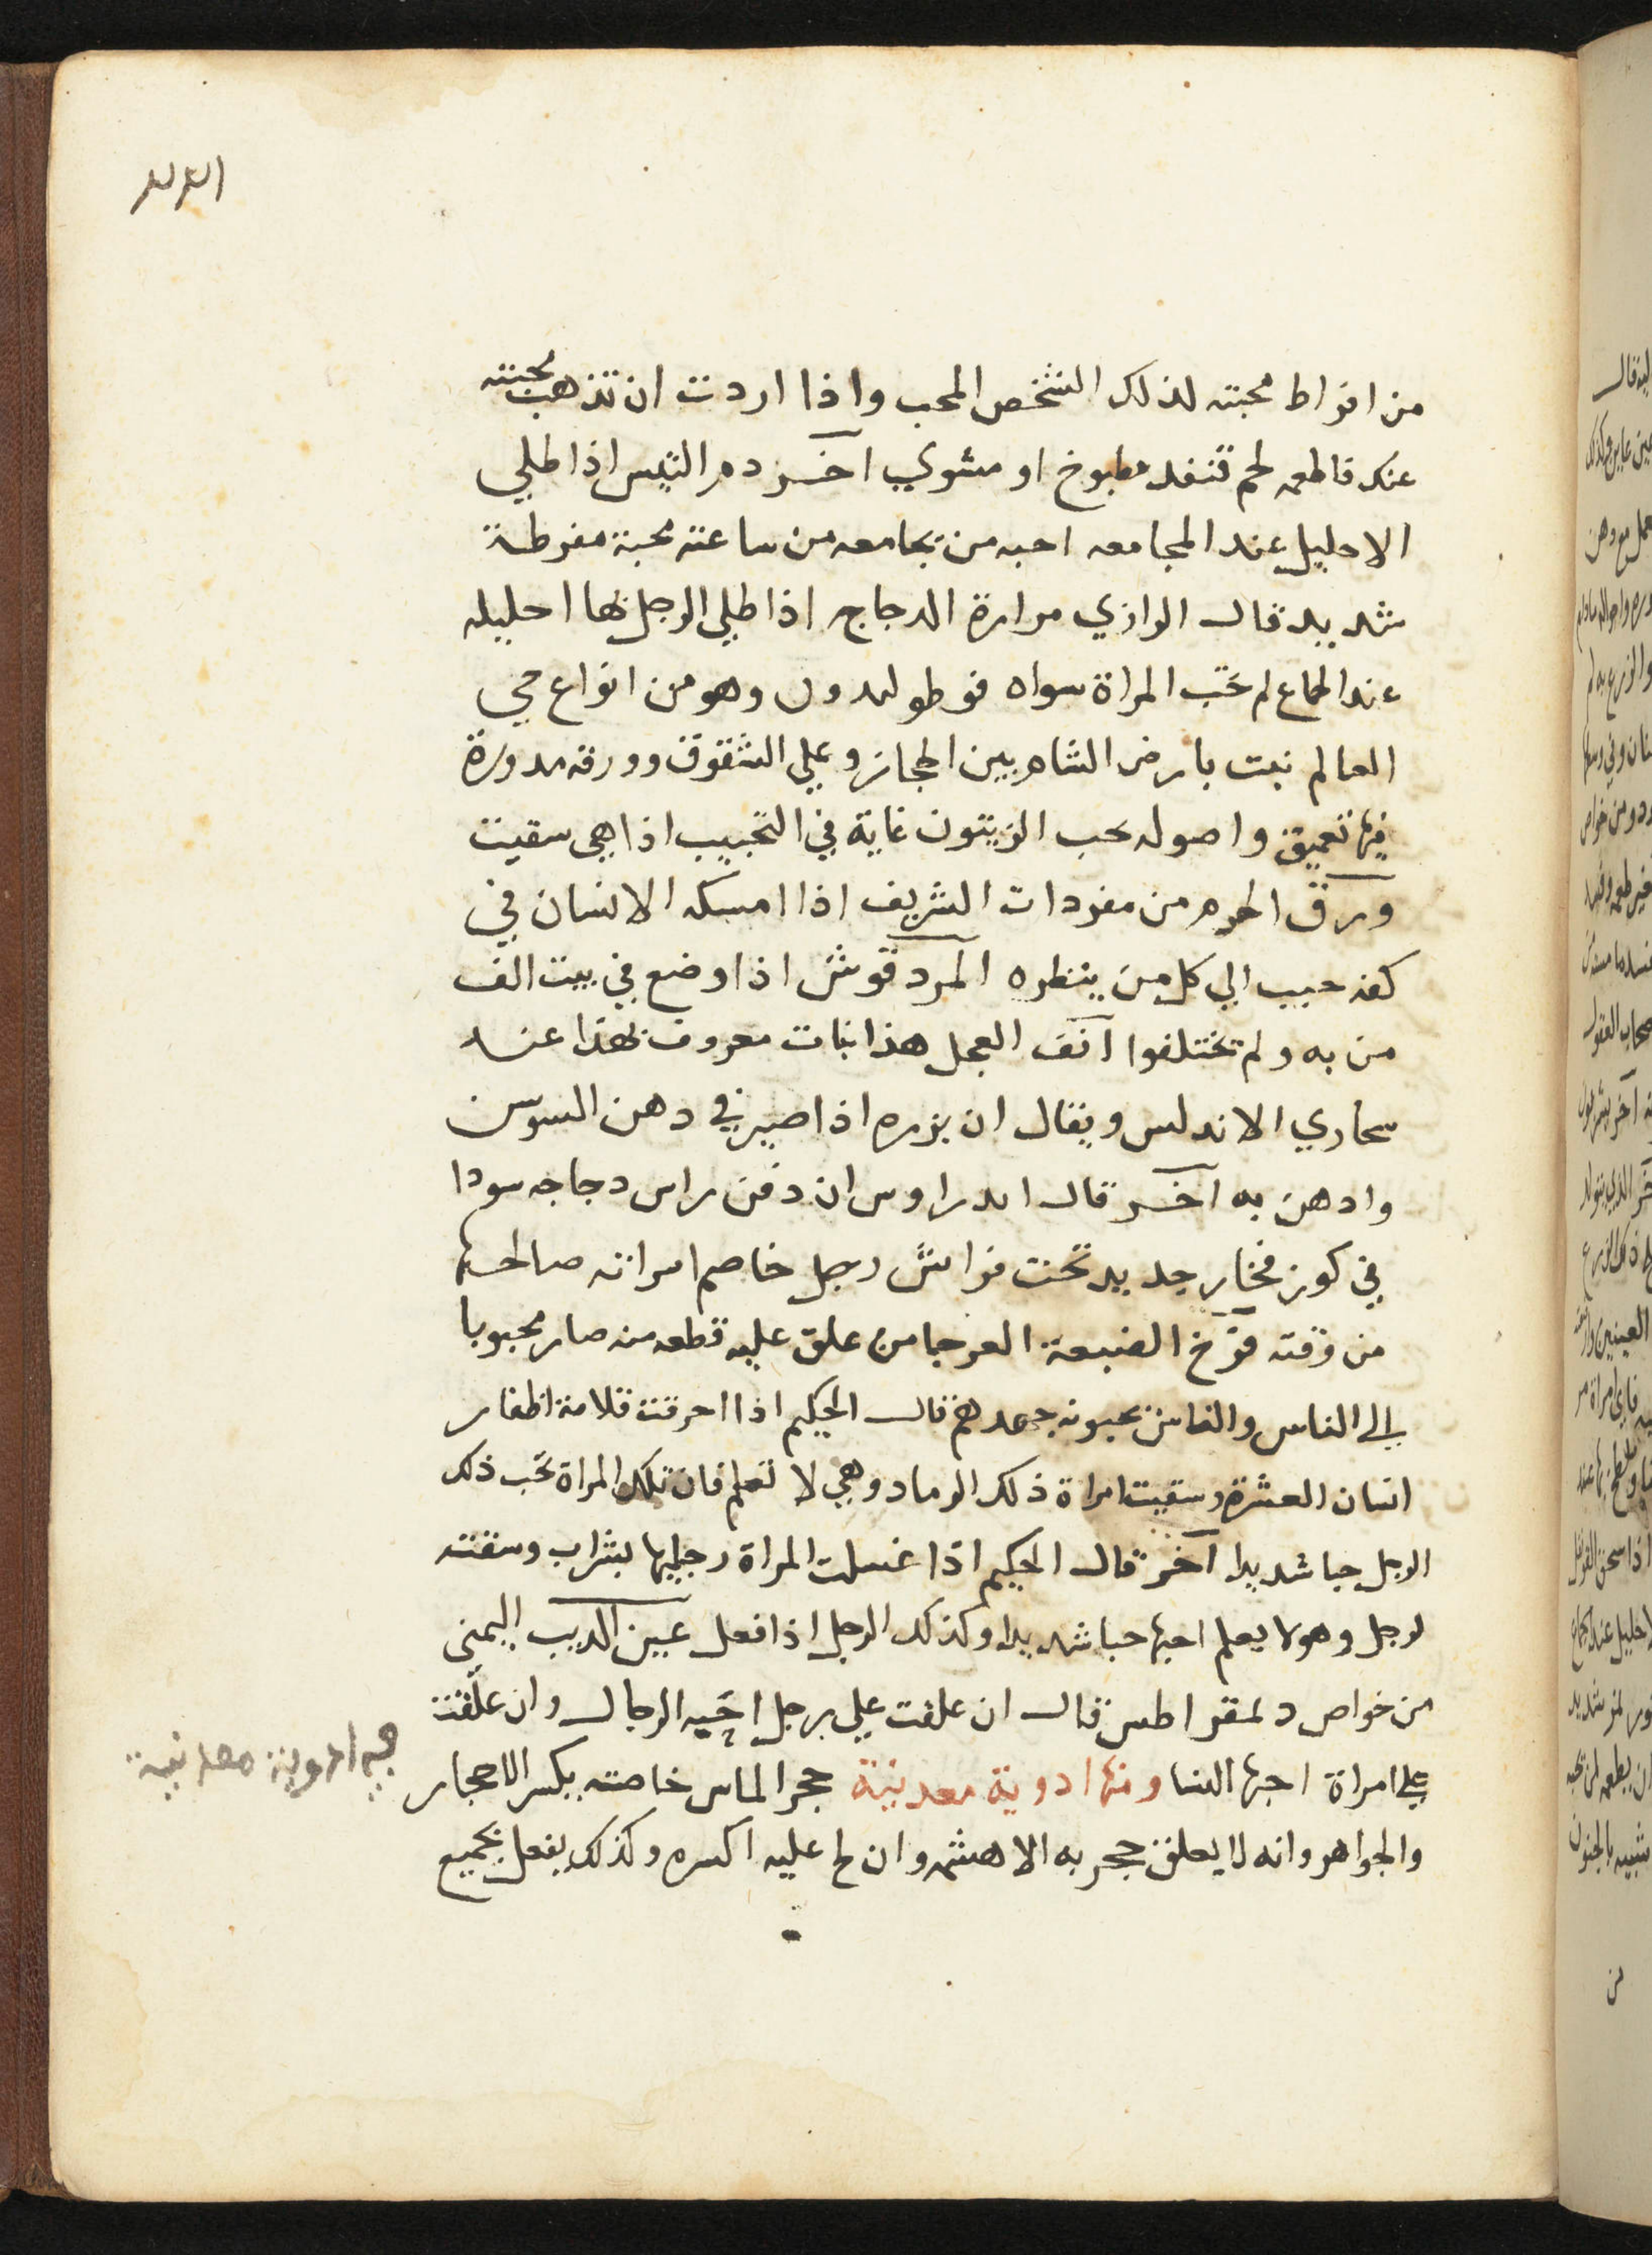 من افراط محبته لذلك الشخص المحب واذا اردت ان تذهب محبته
عنك فاطعمه لحم قنفد مطبوخ او مشوي آخر دم التيس اذا طلي
الاحليل عند المجامعه احبه من يجامعه من ساعته محبة مفرطة
شديد قال الرازي مرارة الدجاج اذا طلي الرجل بها احليله
عند الجماع لم تحب المراة سواه قوطوليدون وهو من انواع حي
العالم نبت بارض الشام بين الحجاز وعلي الشقوق وورقه مدورة
فيها تعميق واصوله كحب الزيتون غاية في التحبيب اذا هي سقيت
ورق من مفردات الشريف اذا امسكه الانسان في
كفه حبب الي كل من ينظره المردقوش اذا وضع في بيت الف
من به ولم تختلفوا انف العجل هذا نبات معروف بهذا عند
سحاري الاندلس ويقال ان بزره اذا صير في دهن السوسن
وادهن به آخر قال ان دفن راس دجاجه سودا
في كوز فخار جديد تحت فراش رجل خاصم امراته صالحها
من وقته فرخ الضبعة العرجا من علق عليه قطعه منه صار محبوبا
الي الناس والناس يحبونه جهدهم قال الحكيم اذا احرقت قلامة اظفار
انسان العشرة وسقيت امراة ذلك الرماد وهي لا تعلم فان تلك المراة تحب ذلك
الرجل حبا شديدا آخر قال الحكيم اذا غسلت المراة رجليها بشراب وسقته
لرجل وهو لا يعلم احبها حبا شديدا وكذلك الرجل اذا فعل عين الديب اليمني
من خواص دلمقراطس قال ان علقت علي رجل احبه الرجال وان علّقت
علي امراة احبها النسا ومنها ادوية معدنية حجر الماس خاصته يكسر الاحجار
والجواهر وانه لا يعلق حجر به الا هشمه وان لح عليه اكسره وكذلك يفعل بجميع
ادوية معدنية